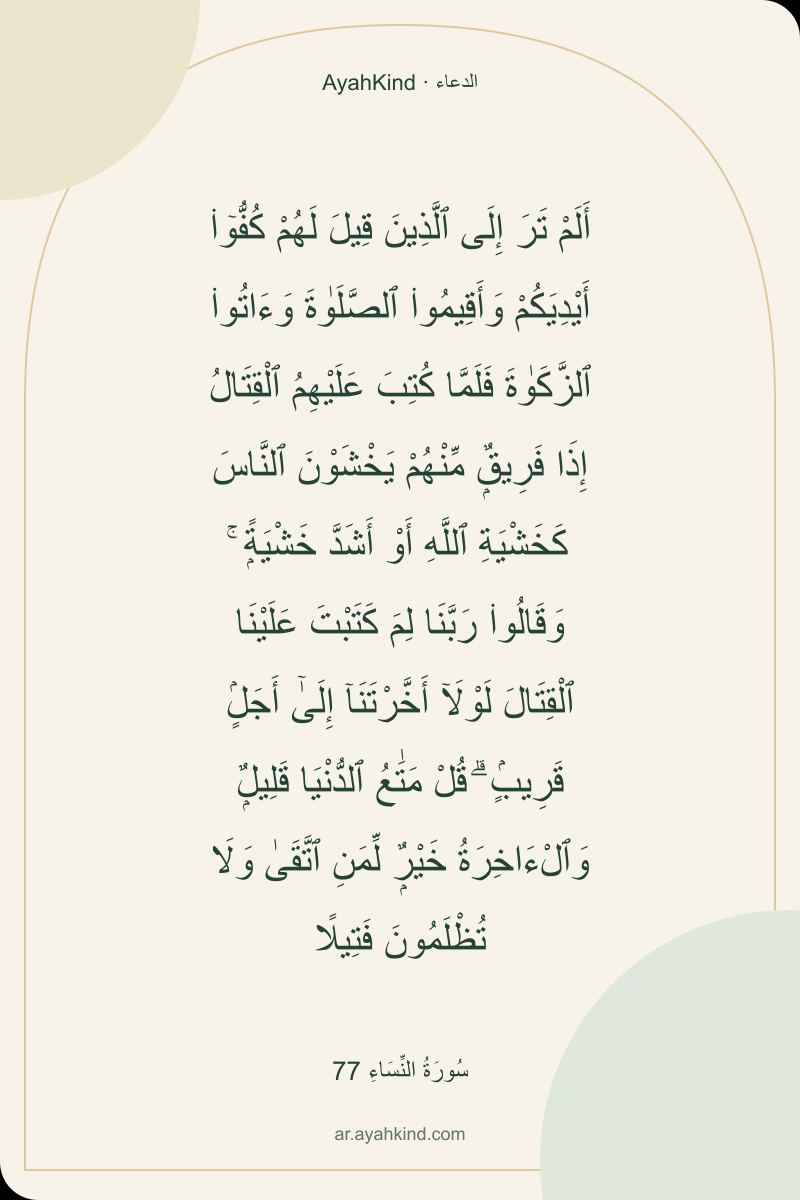 AyahKind · الدعاء
أَلَمْ تَرَ إِلَى ٱلَّذِينَ قِيلَ لَهُمْ كُفُّوٓا۟
أَيْدِيَكُمْ وَأَقِيمُوا۟ ٱلصَّلَوٰةَ وَءَاتُوا۟
ٱلزَّكَوٰةَ فَلَمَّا كُتِبَ عَلَيْهِمُ ٱلْقِتَالُ
إِذَا فَرِيقٌۭ مِّنْهُمْ يَخْشَوْنَ ٱلنَّاسَ
كَخَشْيَةِ ٱللَّهِ أَوْ أَشَدَّ خَشْيَةًۭ ۚ
وَقَالُوا۟ رَبَّنَا لِمَ كَتَبْتَ عَلَيْنَا
ٱلْقِتَالَ لَوْلَآ أَخَّرْتَنَآ إِلَىٰٓ أَجَلٍۢ
قَرِيبٍۢ ۗ قُلْ مَتَـٰعُ ٱلدُّنْيَا قَلِيلٌۭ
وَٱلْءَاخِرَةُ خَيْرٌۭ لِّمَنِ ٱتَّقَىٰ وَلَا
تُظْلَمُونَ فَتِيلًا
سُورَةُ النِّسَاءِ 77
ar.ayahkind.com